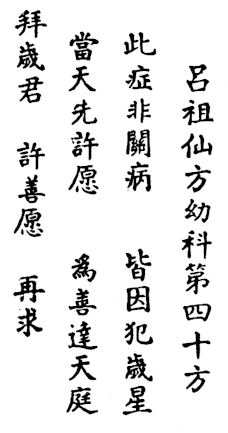 呂祖仙方幼科第四十方
此症非關病　皆因犯歲星
當天先許愿　為善達天庭
拜歲君　許善愿　再求